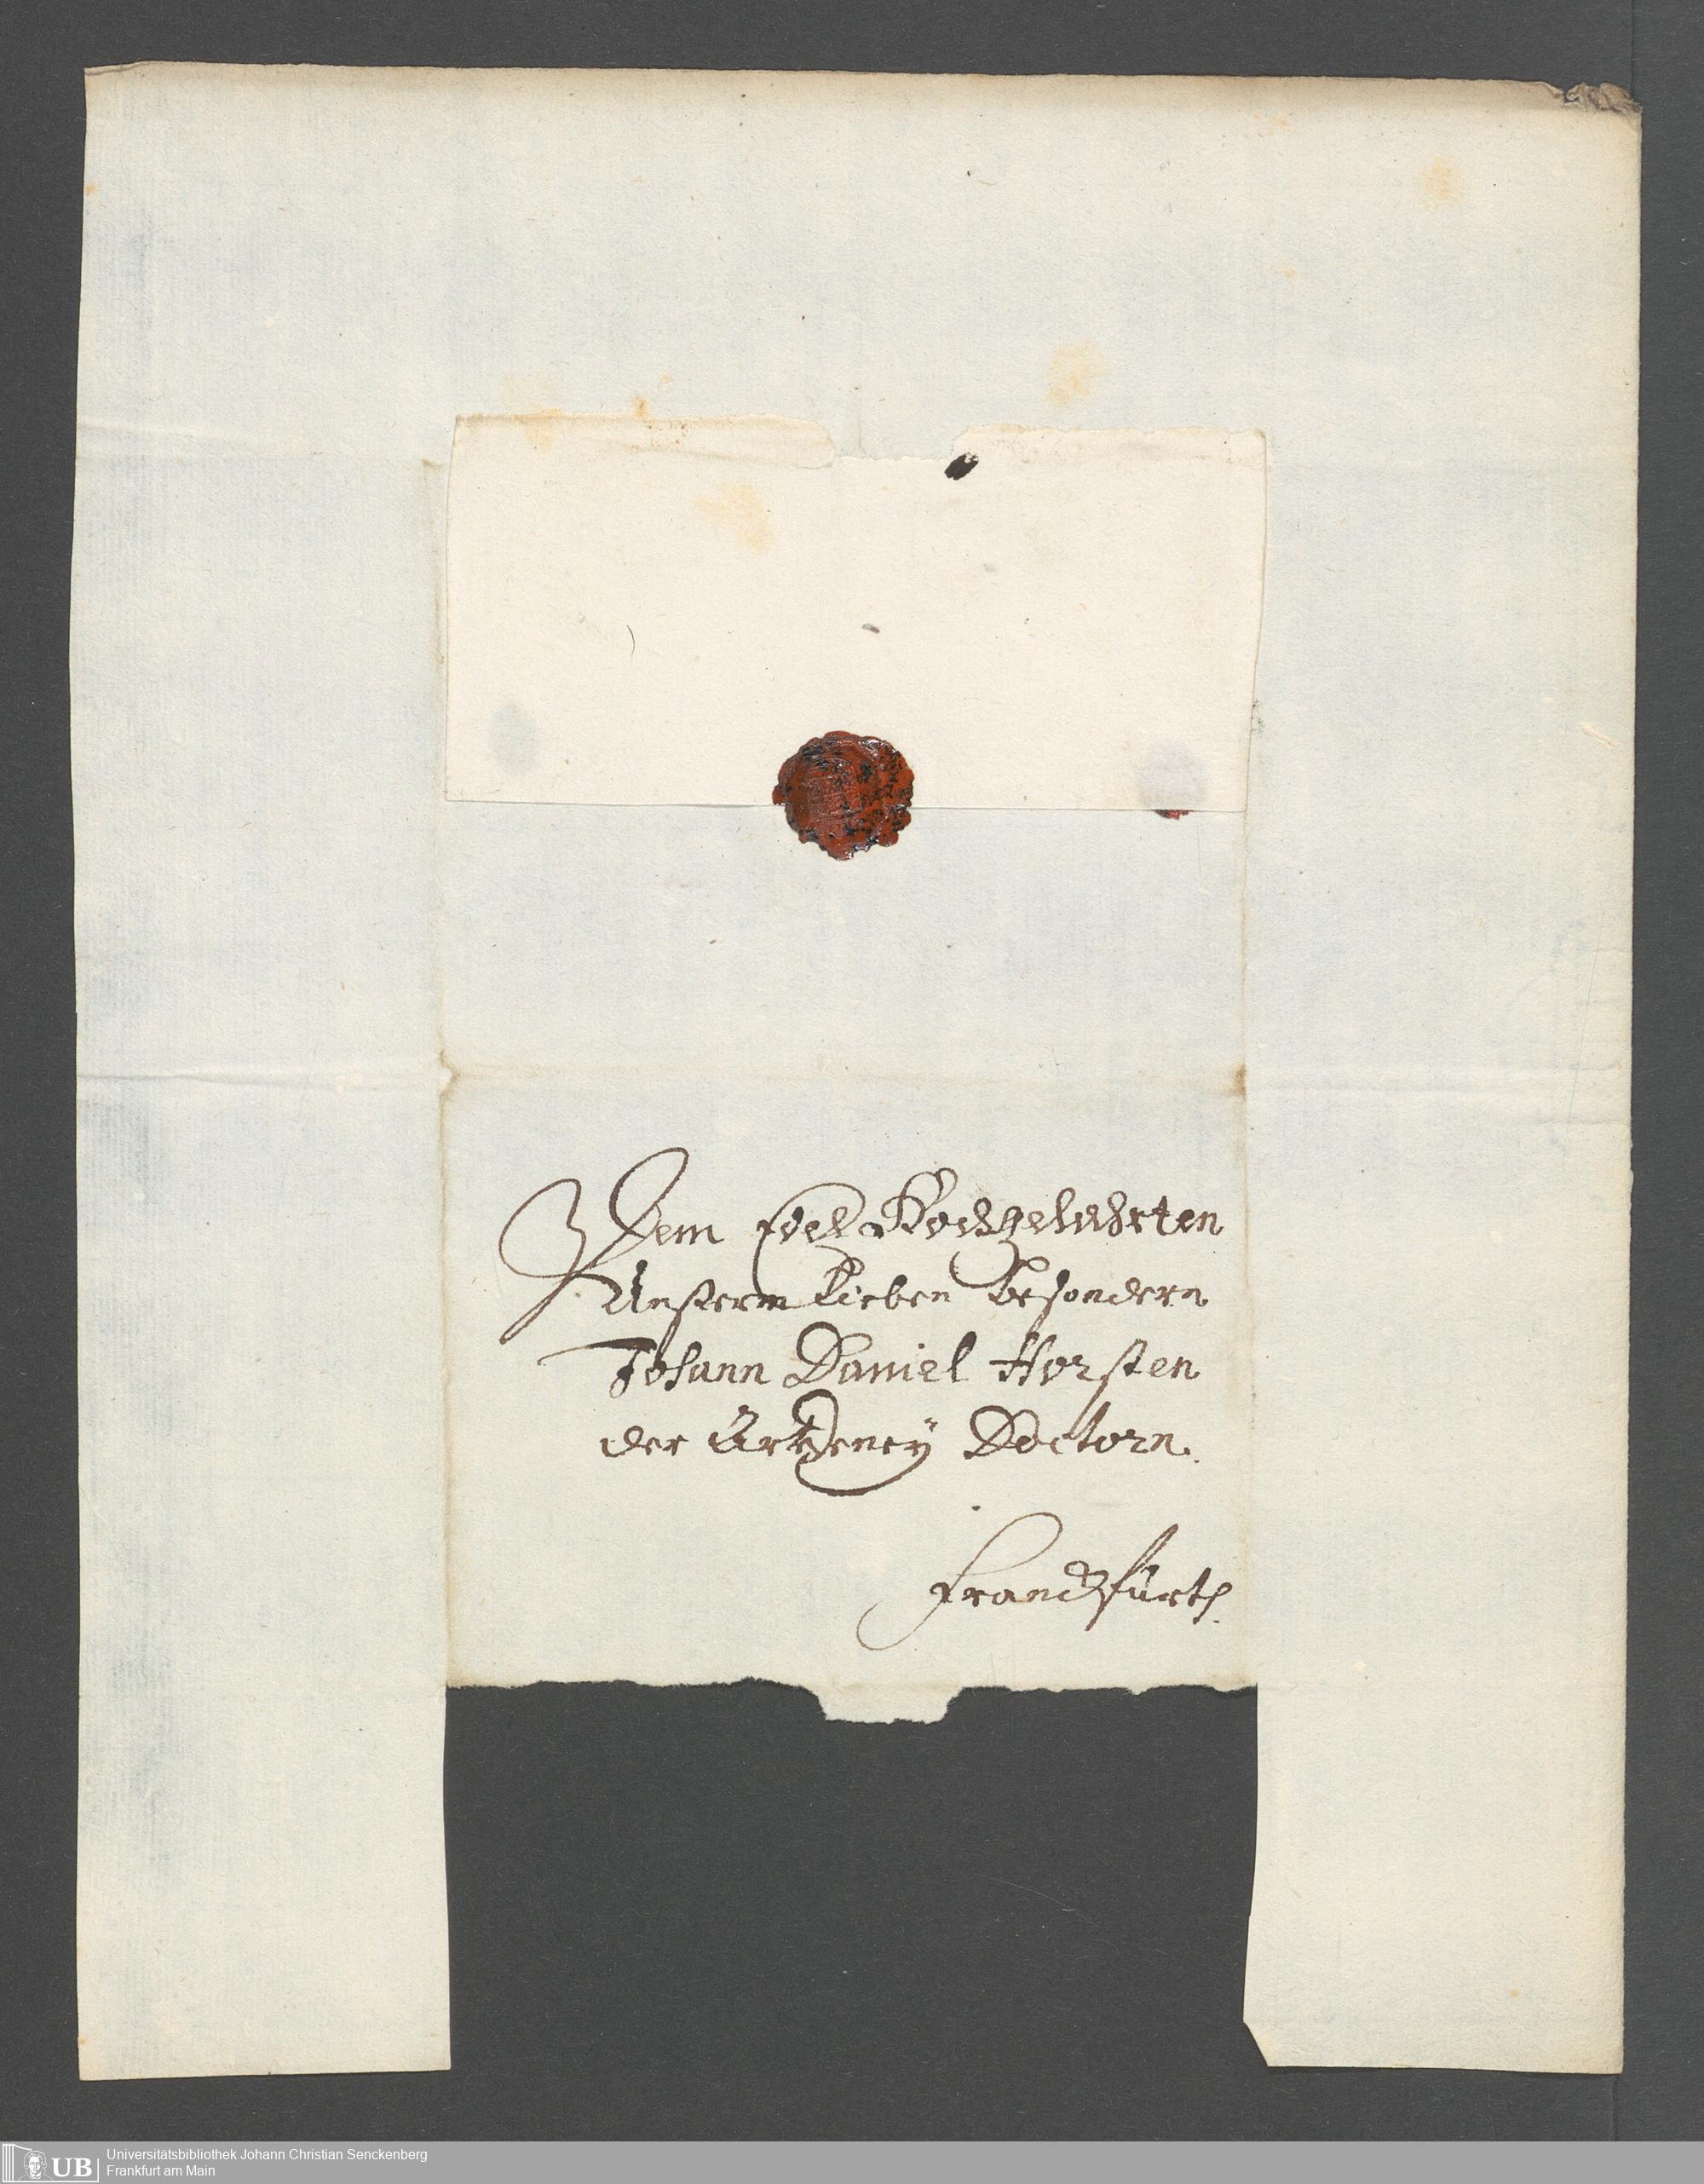 Dem Edel Hochgelehrten
Unserm Lieben besondern
Johann Daniel Horsten
der Artzeney Doctorn.
Franckfurth.
UB
Universitätsbibliothek Johann Christian Senckenberg
Frankfurt am Main